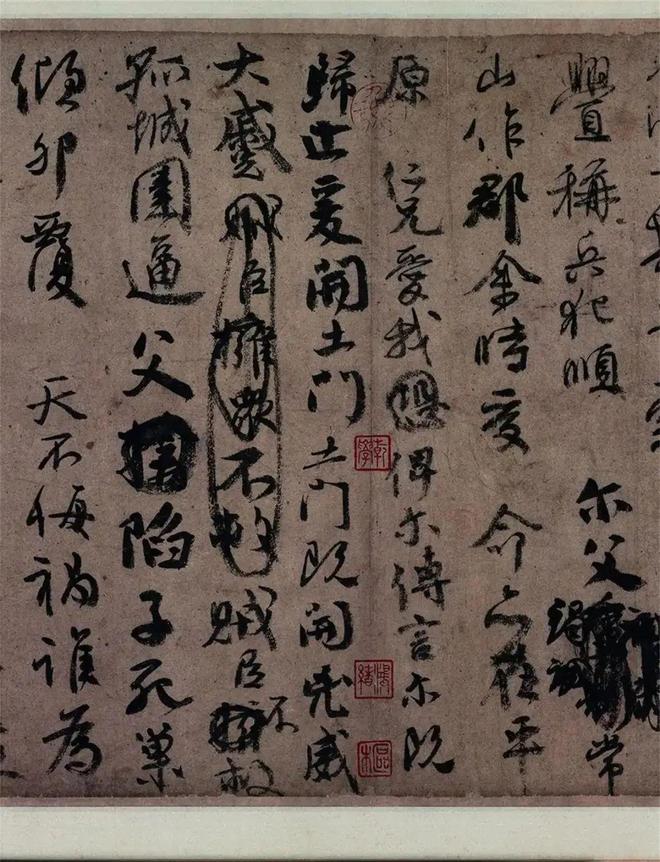 釁稱兵犯順 尔父竭誠常
山作郡余時受 命亦在平
原 仁兄愛我恐俾尔傳言尔既
歸止爰開土門土門既開兇威
大蹙賊臣擁眾不救賊臣不擁救
孤城圍逼父擒陷子死巢
傾卵覆 天不悔禍誰為